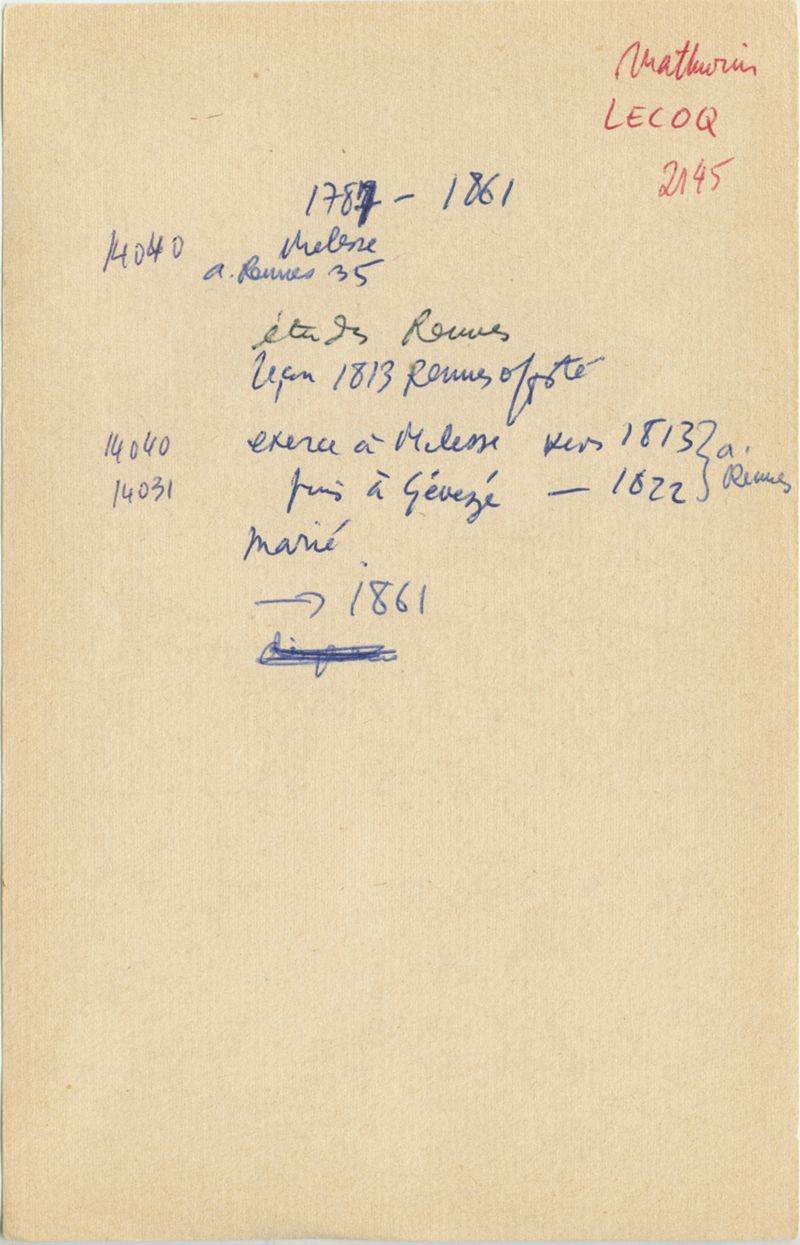 Mathurin
LECOQ
2145
1787 – 1861
14040 Melesse
a. Rennes 35
études Rennes
reçu 1813 Rennes off sté
14040 exerce à Melesse vers 1813 } a. Rennes
14031 puis à Gévezé — 1822
marié
→ 1861